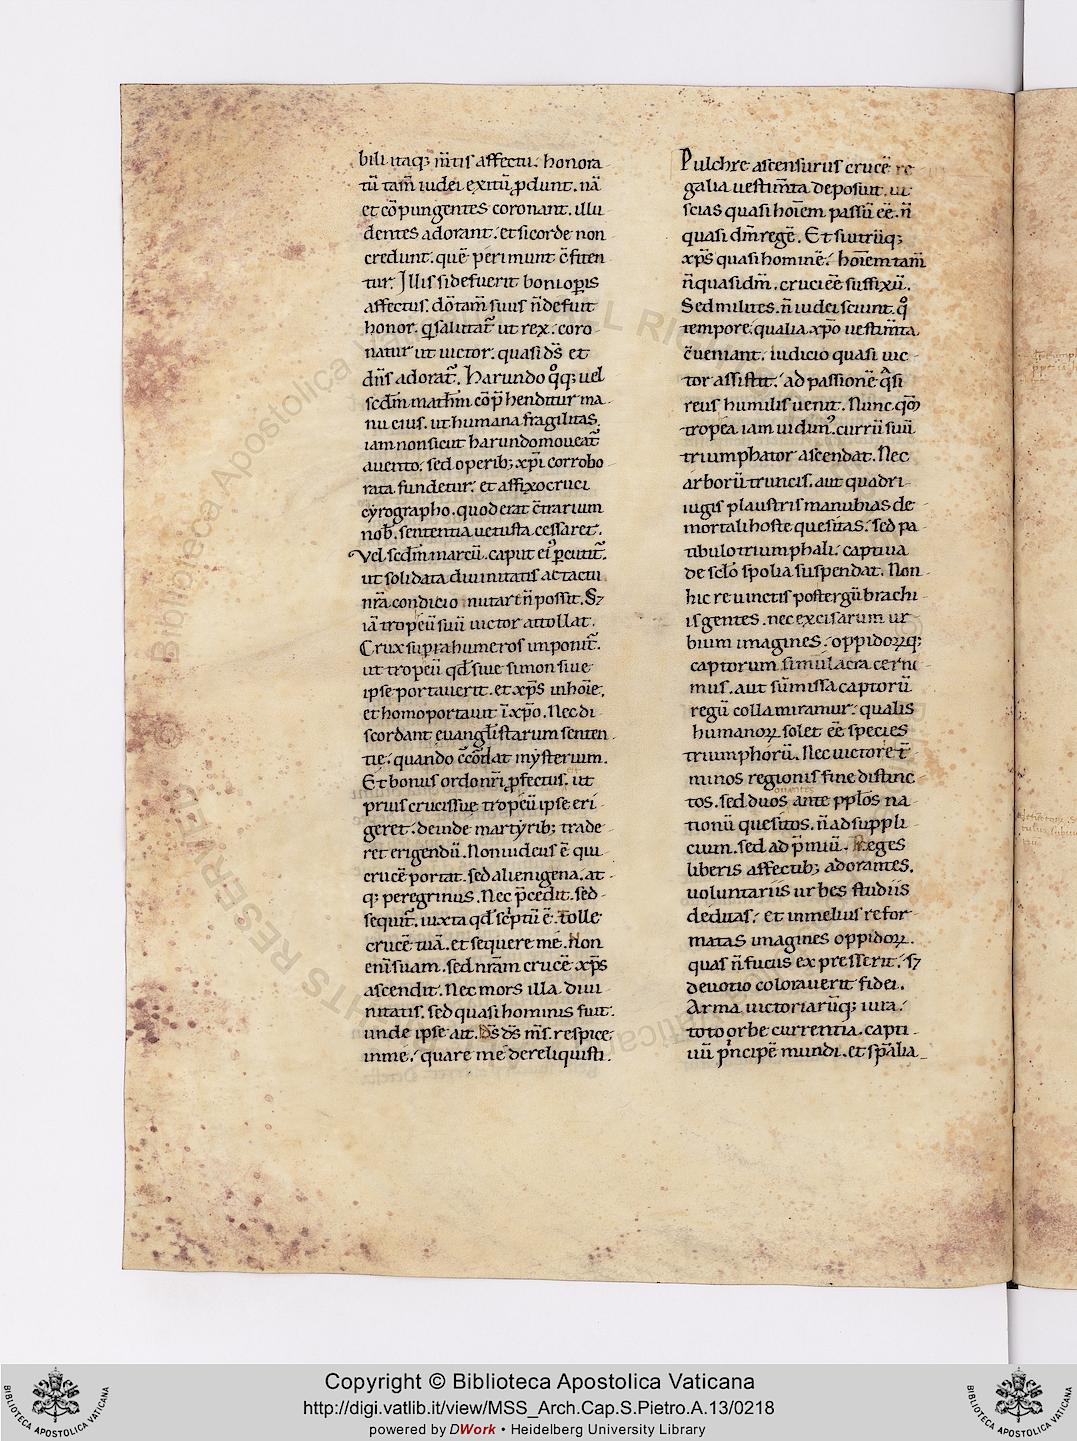 bili itaq; m̅tis affectu. honora
tu̅ tam̅ iudei exitu̅ ꝓdunt. na̅
et co̅pungentes coronant. illu
dentes adorant. et si corde non
credunt. que̅ perimunt c̅fiten
tur. Illis si defuerit boni op̲is
affectus. d̅o tam̅ suus n̅ defuit
honor. q̅ salutat̅ ut rex. coro
natur ut uictor. quasi d̅s et
dn̅s adorat̅. Harundo q̊q; uel
scd̅m math̅m co̅p̅henditur ma
nu eius. ut humana fragilitas
iam non sicut harundo moueat̅
a uento. sed operib; xp̅i corrobo
rata fundetur. et affixo cruci
cyrographo. quod erat c̅trarium
nob̅. sententia uetusta cessaret.
Vel scd̅m marcu̅. caput ei᾽ p̲cutit̅.
ut solidata diuinitatis actactu
nr̅a condicio. nutare n̅ possit. S;
ia̅ tropeu̅ suu̅ uictor attollat.
Crux supra humeros imponit̅.
ut tropeu̅ qd̅ siue simon siue
ipse portauerit. et xp̅s in ho̅ie.
et homo portauit i̅ xp̅o. Nec di
scordant euangl̅istarum senten
tie. quando c̅co̅dat mysterium.
Et bonus ordo nr̅i ꝓfectus. ut
prius crucis sue tropeu̅ ipse eri
geret. deinde martyrib; trade
ret erigendu̅. Non iudeus e̅ qui
cruce̅ portat. sed alienigena. at
q; peregrinus. Nec p̅cedit. sed
sequit̅. iuxta qd̅ sc̅ptu̅ e̅. Tolle
cruce̅ tua̅. et sequere me. Non
eni̅ suam. sed nr̅am cruce̅ xp̅s
ascendit. Nec mors illa diui
nitatis. sed quasi hominis fuit.
unde ipse ait. D̅s d̅s m̅s. respice
in me. quare me dereliquisti.
Pulchre ascensurus cruce̅ re
galia uestim̅ta deposuit. ut
scias quasi hoi̅em passu̅ ee̅. n̅
quasi dm̅ rege̅. Et si utru̅q;
xp̅s quasi homine̅. hoi̅em tam̅
n̅ quasi dm̅. cruci ee̅ suffixu̅.
Sed milites. n̅ iudei sciunt. q̊
tempore. qualia xp̅o uestim̅ta
c̅ueniant. Iudicio quasi uic
tor assistit. ad passione̅ q̅si
reus humilis uenit. Nunc qm̅
tropea iam uidim᾽. curru̅ suu̅
triumphator ascendat. Nec
arboru̅ truncis. aut quadri
iugis plaustris manubias de
mortali hoste quesitas. sed pa
tibulo triumphali. captiua
de sc̅lo spolia suspendat. Non
hic reuinctis postergu̅ brachi
is gentes. nec excisarum ur
bium imagines. oppidoꝝq;
captorum simulacra cerni
mus. aut su̅missa captoru̅
regu̅ colla miramur. qualis
humanoꝝ solet ee̅ species
triumphoru̅. Nec uictore t̅
minos regionis fine distinc
tos. sed duos ante pplo̅s na
tionu̅ quesitos. n̅ ad suppli
cium. sed ad p̅miu̅. Reges
liberis affectib; adorantes.
uoluntariis urbes studiis
deditas. et in melius refor
matas imagines oppidoꝝ.
quas n̅ fucus expresserit. s;
deuotio colorauerit fidei.
Arma uictoriaru̅q; iura.
toto orbe currentia. capti
uu̅ p̅ncipe̅ mundi. et sp̅alia
Copyright © Biblioteca Apostolica Vaticana
http://digi.vatlib.it/view/MSS_Arch.Cap.S.Pietro.A.13/0218
powered by DWork • Heidelberg University Library
BIBLIOTECA APOSTOLICA VATICANA
BIBLIOTECA APOSTOLICA VATICANA